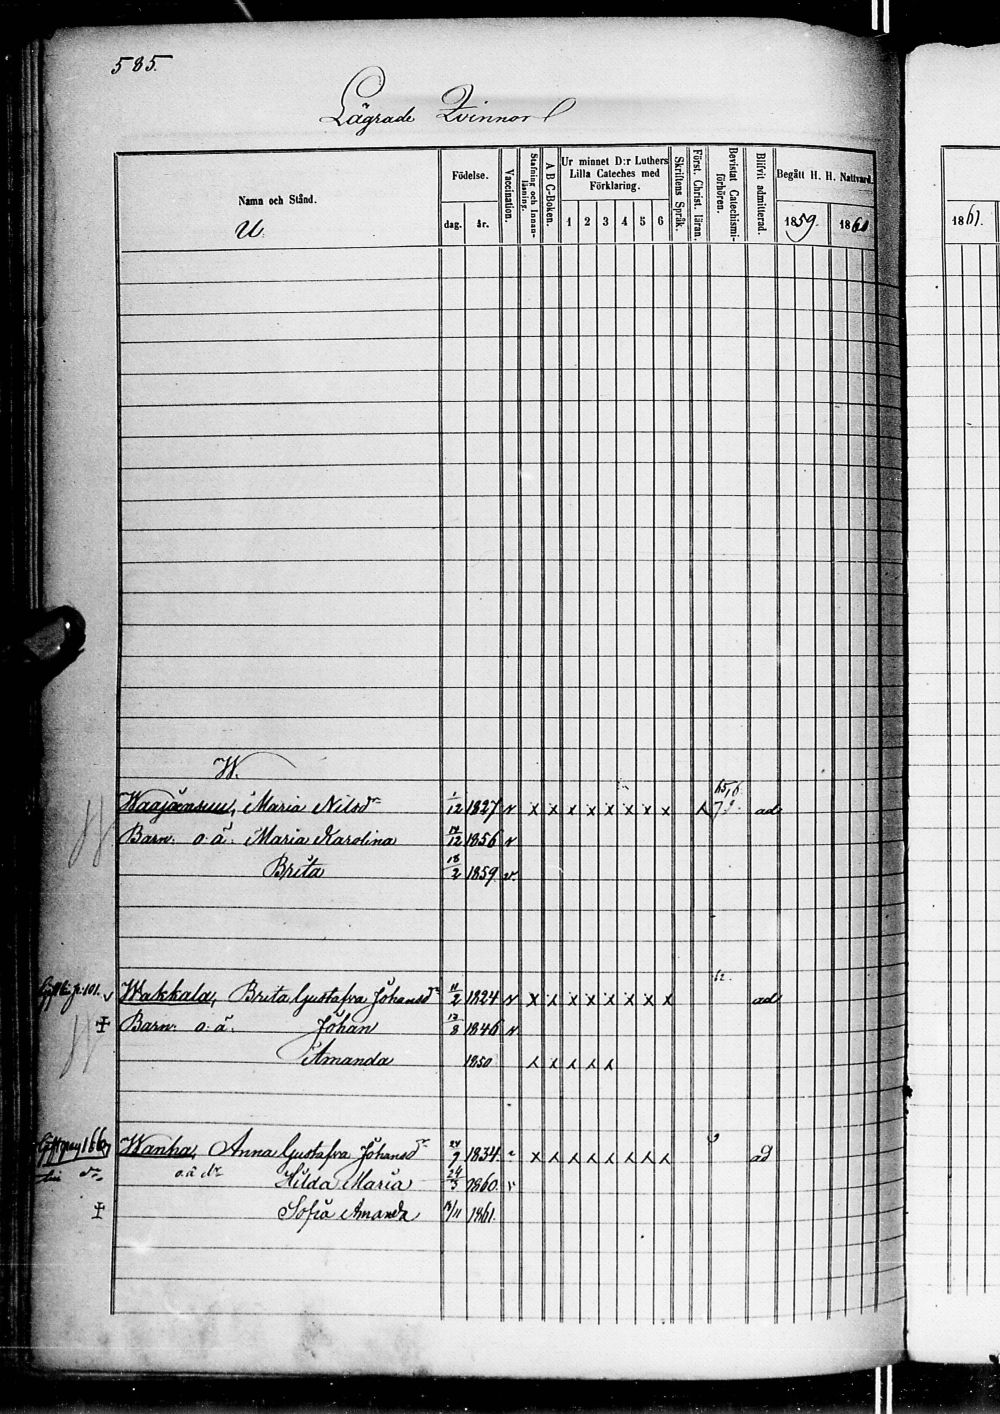 585.
Lägrade Qvinnor
Namn och Stånd.
U.
Födelse.
dag. år.
Vaccination.
Stafning och Innanläsning.
A B C-Boken.
Ur minnet D:r Luthers Lilla Cateches med Förklaring.
1 2 3 4 5 6
Skriftens Språk.
Först. Christ. läran.
Bevistat Catechismiförhören.
Blifvit admitterad.
Begått H. H. Nattvard.
1859. 1860
1861.
W.
Waajansuu, Maria Nilsdr 1/12 1827 v x x x x x x x x x ad
Barn: o. ä: Maria Karolina 1856 v
Brita 18/2 1859 v.
Wakkala, Brita Gustafva Johansdr 11/2 1824 v x x x x x x x x ad
Barn: o. ä. Johan 1846 v
Amanda 1850 x x x x x
Wanha, Anna Gustafva Johansdr 1834 x x x x x x x x ad
o. ä dr Hilda Maria 24/3 1860. v
Sofia Amanda 1861.